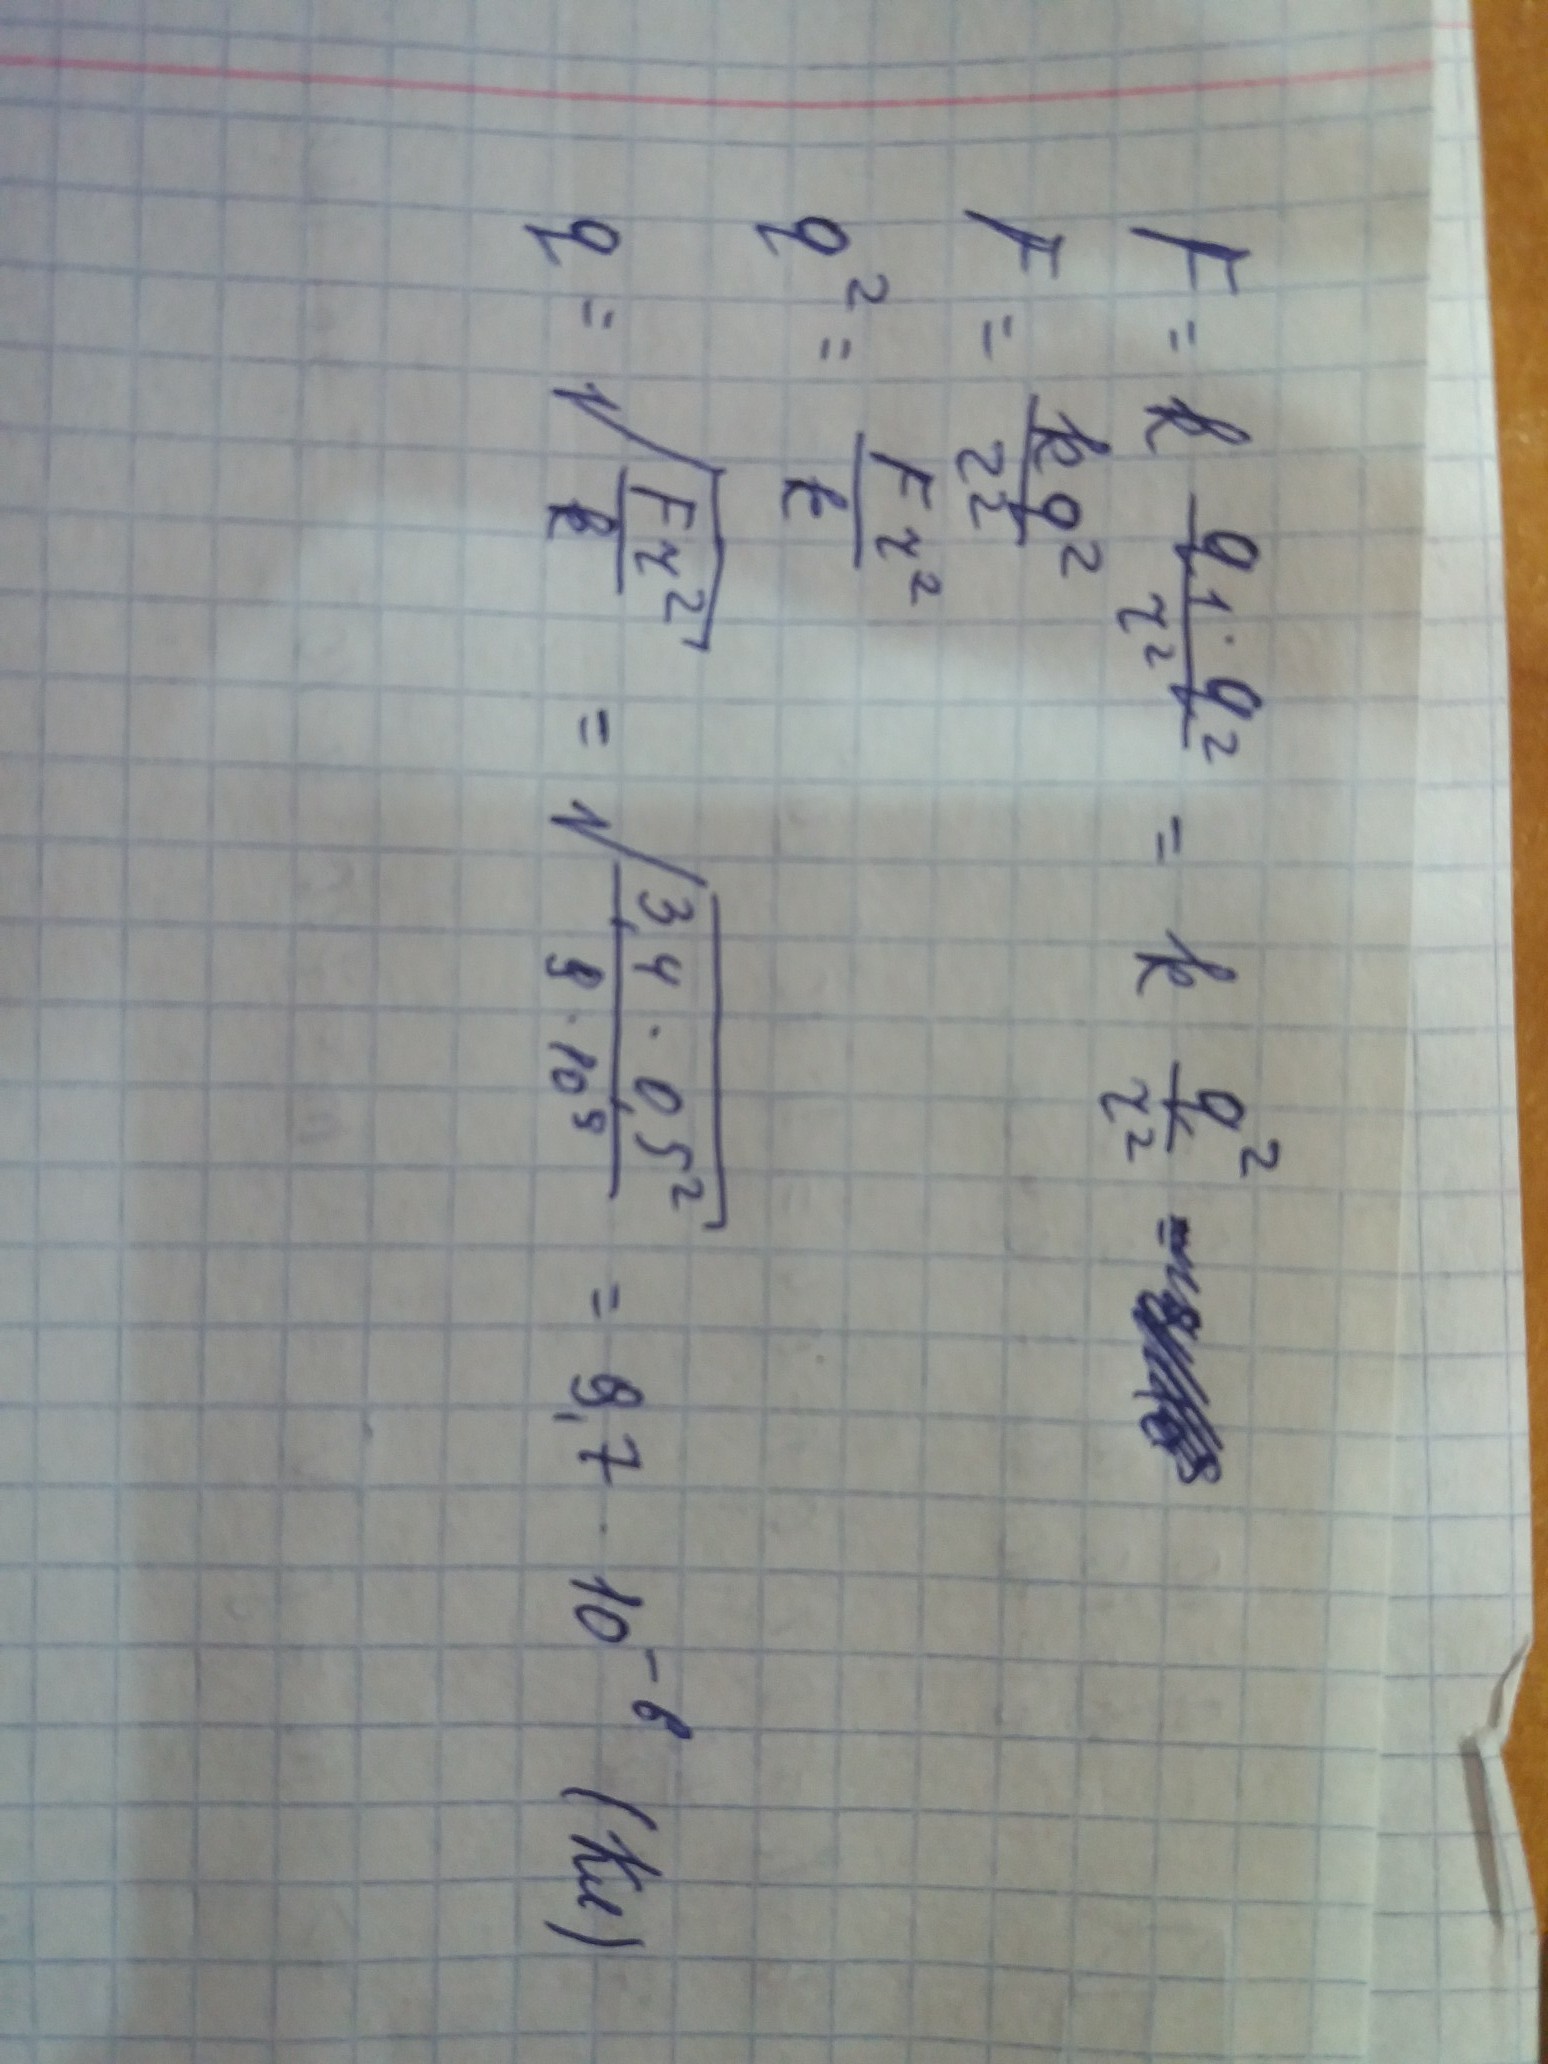 F = k q₁·q₂/r² = k q²/r² =
F = kq²/r²
q² = Fr²/k
q = √(Fr²/k) = √(3,4 · 0,5²/9·10⁹) = 9,7 · 10⁻⁶ (Кл)